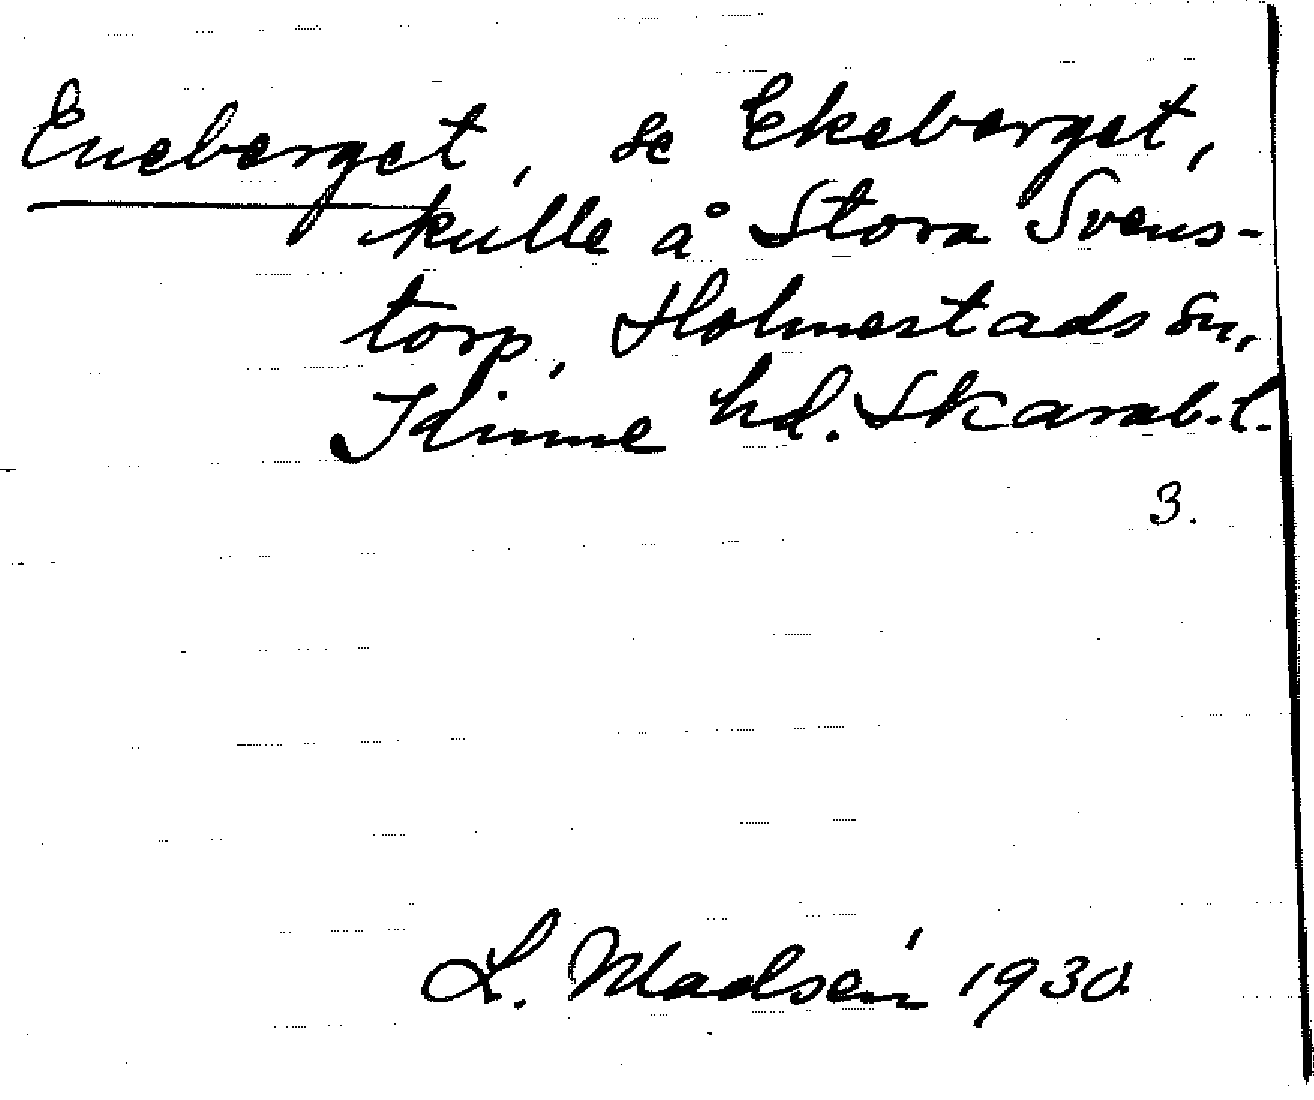 Eneberget, se Ekeberget,
kulle å Stora Svens-
torp, Holmestads sn,
Kinne hd. Skarab. l.
3.
L. Madsén 1930.